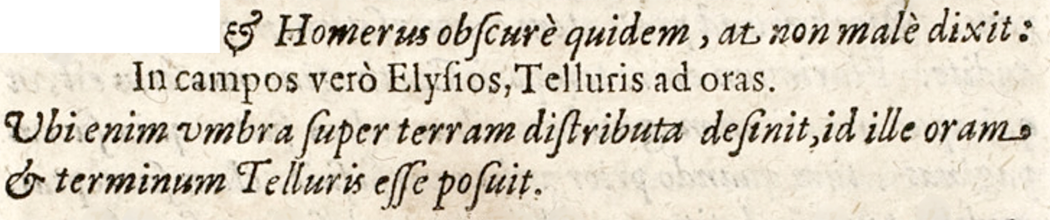 & Homerus obſcurè quidem, at non malè dixit:
In campos verò Elyſios, Telluris ad oras.
Vbi enim vmbra ſuper terram diſtributa deſinit, id ille oram
& terminum Telluris eſſe poſuit.